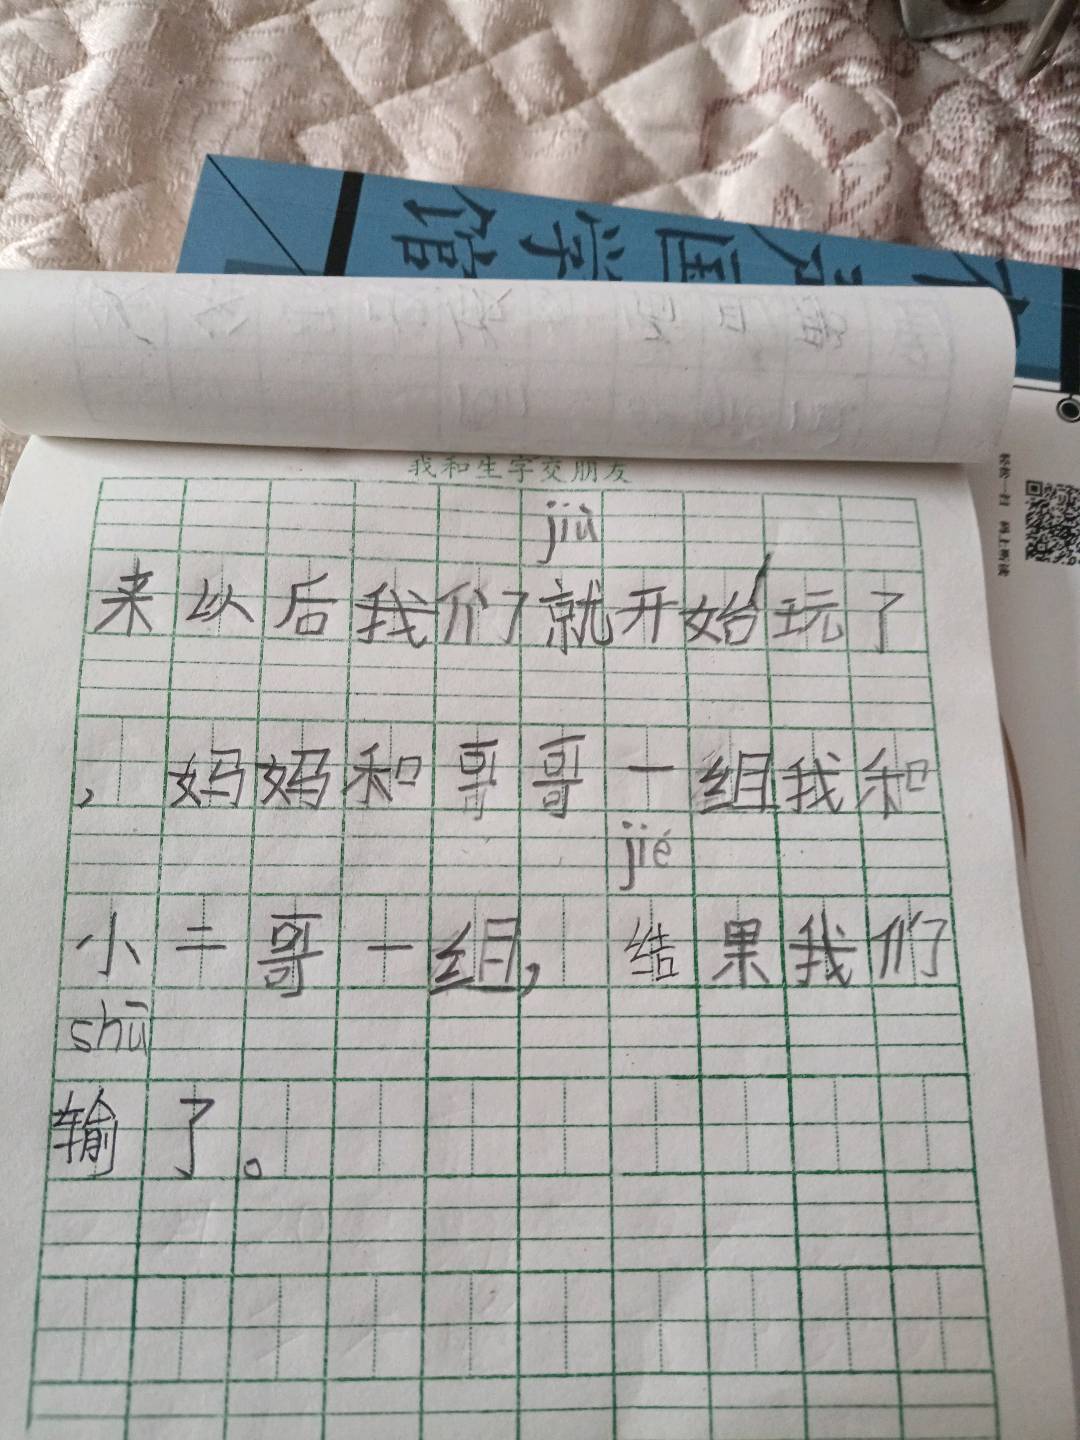 国学馆
我和生字交朋友
jiù
来以后我们就开始玩了
，妈妈和哥哥一组我和
jié
小二哥一组，结果我们
shū
输了。